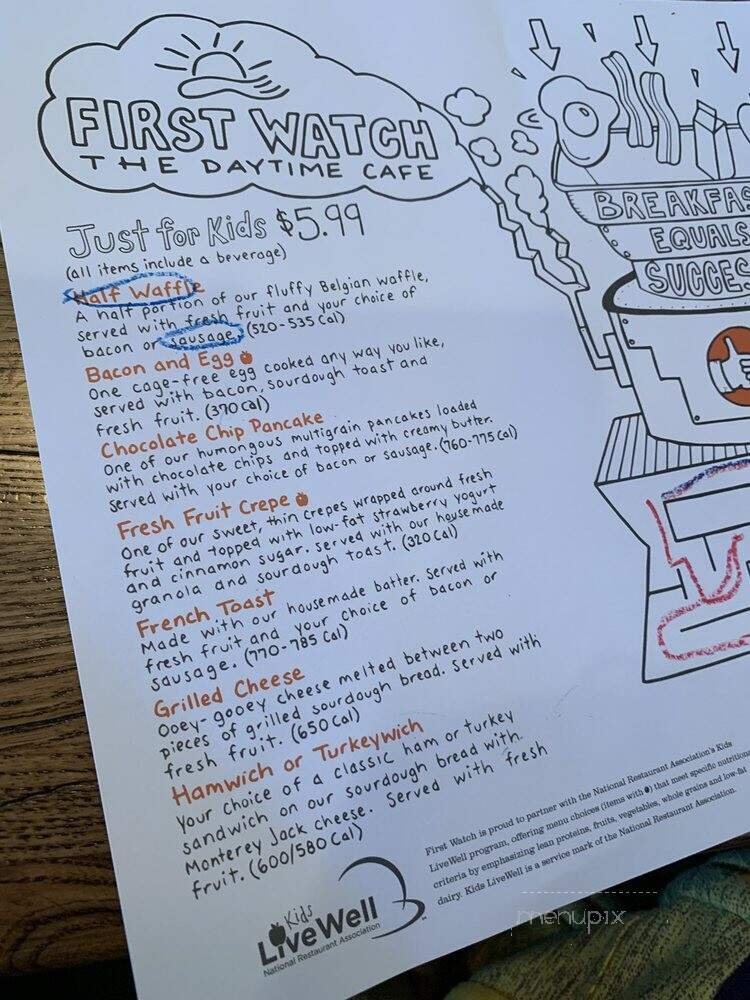 FIRST WATCH
THE DAYTIME CAFE
Just for Kids $5.99
(all items include a beverage)
Half Waffle
A half portion of our fluffy Belgian waffle,
served with fresh fruit and your choice of
bacon or sausage. (520-535 Cal)
Bacon and Egg
One cage-free egg cooked any way you like,
served with bacon, sourdough toast and
fresh fruit. (370 Cal)
Chocolate Chip Pancake
One of our humongous multigrain pancakes loaded
with chocolate chips and topped with creamy butter.
Served with your choice of bacon or sausage. (760-775 Cal)
Fresh Fruit Crepe
One of our sweet, thin crepes wrapped around fresh
fruit and topped with low-fat strawberry yogurt
and cinnamon sugar. Served with our housemade
granola and sourdough toast. (320 Cal)
French Toast
Made with our housemade batter. Served with
fresh fruit and your choice of bacon or
sausage. (770-785 Cal)
Grilled Cheese
Ooey-gooey cheese melted between two
pieces of grilled sourdough bread. Served with
fresh fruit. (650 Cal)
Hamwich or Turkeywich
Your choice of a classic ham or turkey
sandwich on our sourdough bread with
Monterey Jack cheese. Served with fresh
fruit. (600/580 Cal)
BREAKFAS
EQUALS
SUCCES
Kids
LiveWell
National Restaurant Association
First Watch is proud to partner with the National Restaurant Association's Kids
LiveWell program, offering menu choices (items with ) that meet specific nutrition
criteria by emphasizing lean proteins, fruits, vegetables, whole grains and low-fat
dairy. Kids LiveWell is a service mark of the National Restaurant Association.
menupix